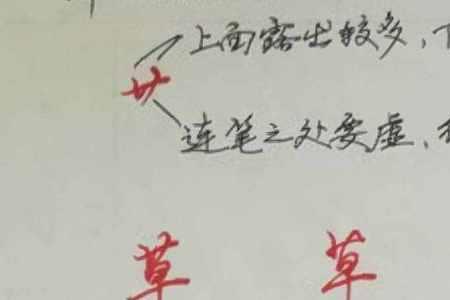 上面露出较多，
艹
连笔之处要虚，
草 草